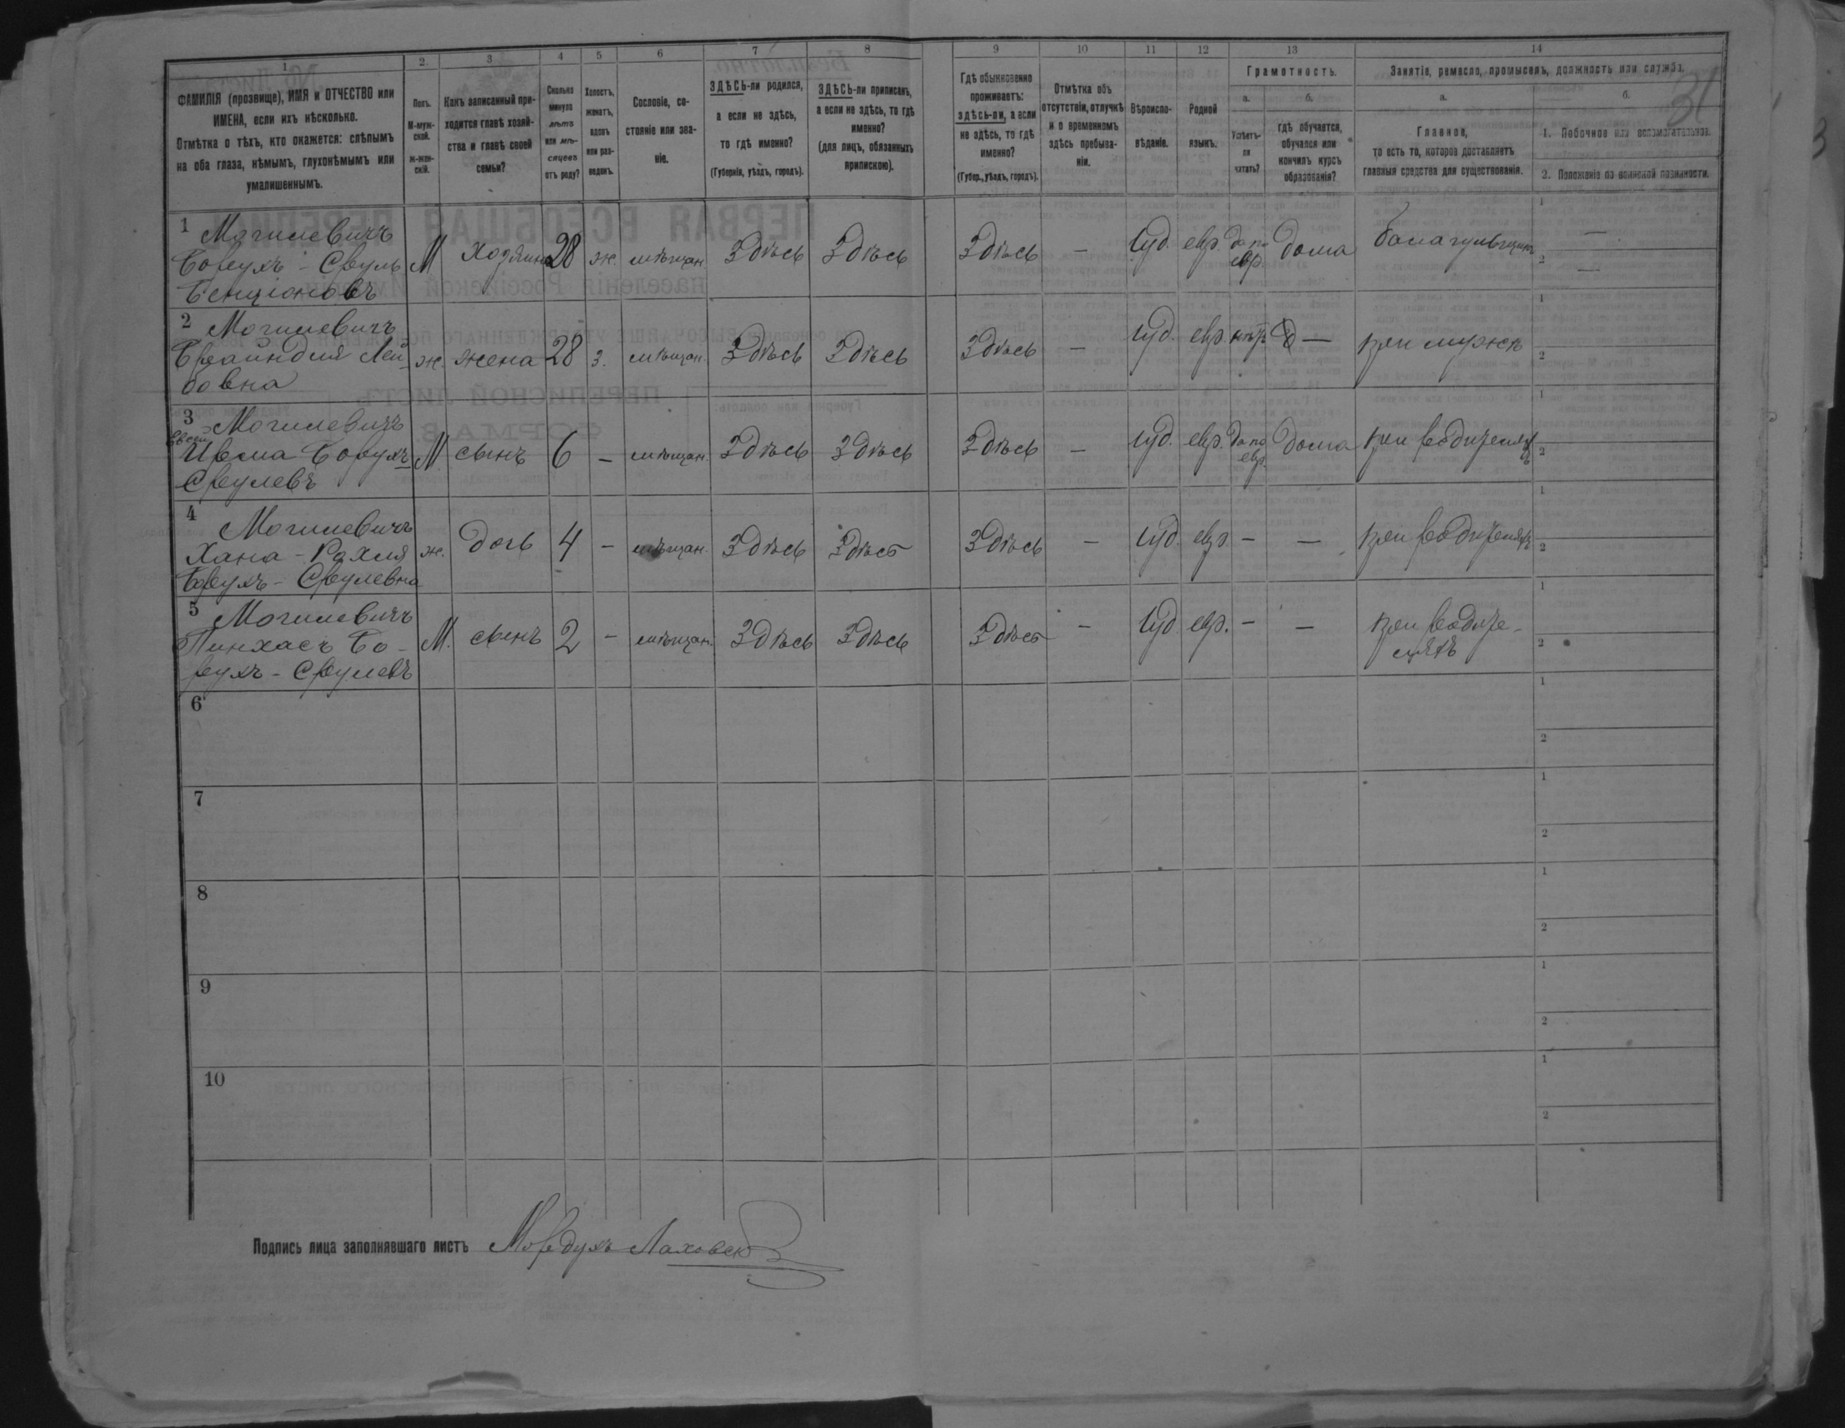 1 2 3 4 5 6 7 8 9 10 11 12 13 14
ФАМИЛІЯ (прозвище), ИМЯ и ОТЧЕСТВО или ИМЕНА, если ихъ нѣсколько.
Отмѣтка о тѣхъ, кто окажется: слѣпымъ на оба глаза, нѣмымъ, глухонѣмымъ или умалишеннымъ.
Полъ. М-мужской. Ж-женскій.
Какъ записанный приходится главѣ хозяйства и главѣ своей семьи?
Сколько минуло лѣтъ или мѣсяцевъ отъ роду?
Холостъ, женатъ, вдовъ или разведенъ.
Сословіе, состояніе или званіе.
ЗДѢСЬ-ли родился, а если не здѣсь, то гдѣ именно?
(Губернія, уѣздъ, городъ).
ЗДѢСЬ-ли приписанъ, а если не здѣсь, то гдѣ именно?
(для лицъ, обязанныхъ припискою).
Гдѣ обыкновенно проживаетъ: здѣсь-ли, а если не здѣсь, то гдѣ именно?
(Губер., уѣздъ, городъ).
Отмѣтка объ отсутствіи, отлучкѣ и о временномъ здѣсь пребываніи.
Вѣроисповѣданіе.
Родной языкъ.
Грамотность.
а.
Умѣетъ-ли читать?
б.
гдѣ обучается, обучался или кончилъ курсъ образованія?
Занятіе, ремесло, промыселъ, должность или служба.
а.
Главное,
то есть то, которое доставляетъ главныя средства для существованія.
б.
1. Побочное или вспомогательное.
2. Положеніе по воинской повинности.
31
1 Могилевичъ
Борухъ-Сруль М хозяинъ 28 ж. мѣщан. Здѣсь Здѣсь Здѣсь — Іуд. евр да по евр. дома балагульщикъ — —
Бенціоновъ
2 Могилевичъ
Брайндля Лей- ж. жена 28 з. мѣщан. Здѣсь Здѣсь Здѣсь — Іуд. евр нѣтъ — при мужѣ
бовна
3 Могилевичъ
Борухъ М сынъ 6 — мѣщан. Здѣсь Здѣсь Здѣсь — Іуд. евр. да по евр. дома при родителяхъ
Срулевъ
4 Могилевичъ
Хана-Рахля ж. дочь 4 — мѣщан. Здѣсь Здѣсь Здѣсь — Іуд. евр — — при родителяхъ
Борухъ-Срулевна
5 Могилевичъ
Пинхасъ Бо- М. сынъ 2 — мѣщан. Здѣсь Здѣсь Здѣсь — Іуд евр. — — при родите-
рухъ-Срулевъ ляхъ
6
7
8
9
10
Подпись лица заполнявшаго листъ Мордухъ Лаховскій